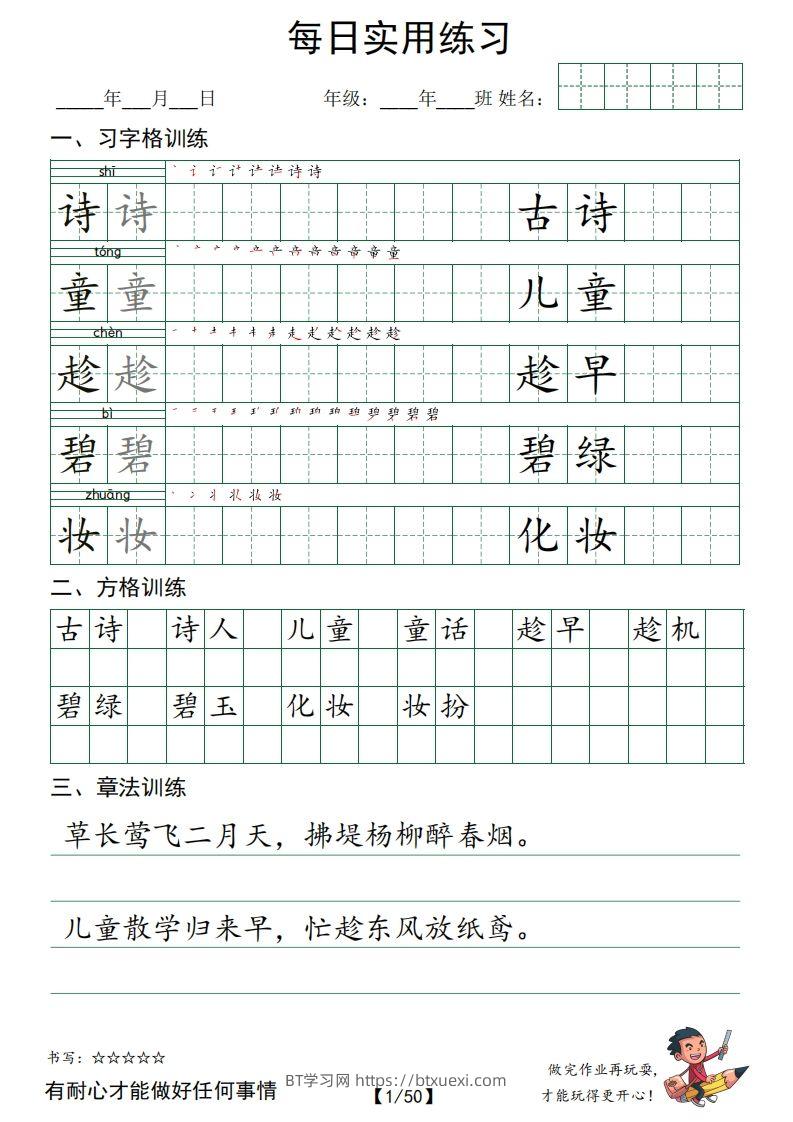 每日实用练习
_____年___月___日 年级：____年____班 姓名：
一、习字格训练
shī
诗 诗 古 诗
tóng
童 童 儿 童
chèn
趁 趁 趁 早
bì
碧 碧 碧 绿
zhuāng
妆 妆 化 妆
二、方格训练
古诗 诗人 儿童 童话 趁早 趁机
碧绿 碧玉 化妆 妆扮
三、章法训练
草长莺飞二月天，拂堤杨柳醉春烟。
儿童散学归来早，忙趁东风放纸鸢。
书写：☆☆☆☆☆
有耐心才能做好任何事情
BT学习网 https://btxuexi.com
【1/50】
做完作业再玩耍，
才能玩得更开心！